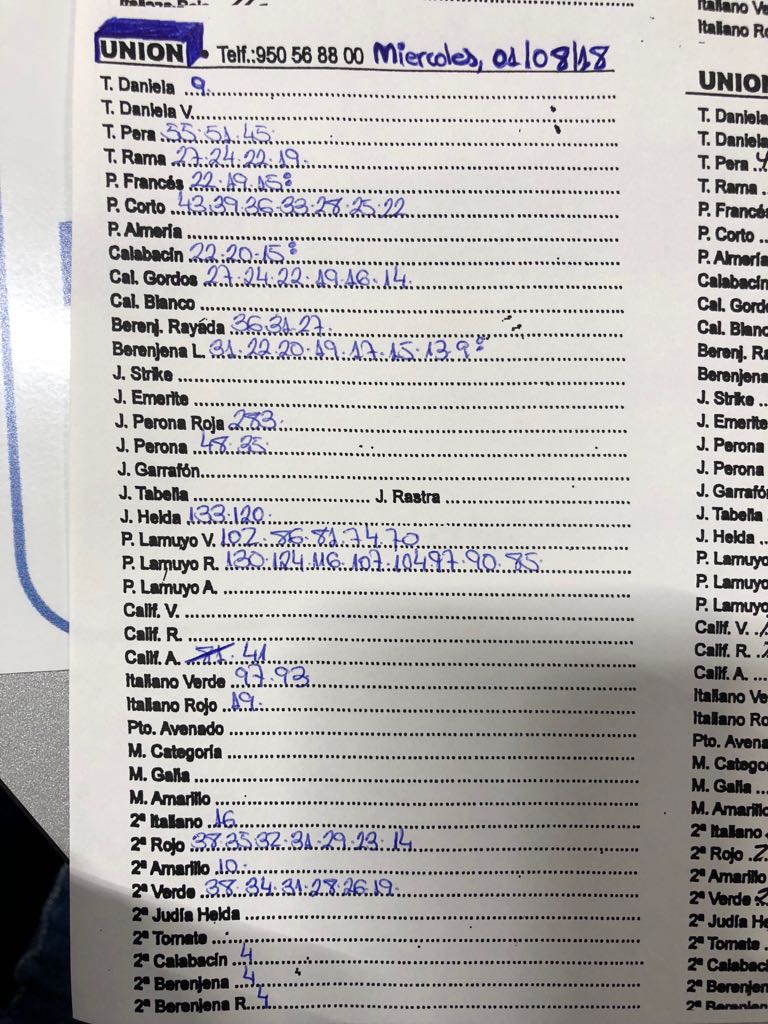 UNION. Telf.:950 56 88 00 Miercoles, 01/08/18
T. Daniela 9.
T. Daniela V.
T. Pera 55.51.45.
T. Rama 27.24.22.19.
P. Francés 22.19.15
P. Corto 43.39.36.33.28.25.22
P. Almería
Calabacín 22.20.15
Cal. Gordos 27.24.22.19.16.14.
Cal. Blanco
Berenj. Rayada 36.31.27.
Berenjena L. 31.22.20.19.17.15.13.9
J. Strike
J. Emerite
J. Perona Roja 283.
J. Perona 48.35.
J. Garrafón
J. Tabella J. Rastra
J. Helda 133.120.
P. Lamuyo V. 102.86.81.74.70.
P. Lamuyo R. 130.124.116.107.104.97.90.85.
P. Lamuyo A.
Calif. V.
Calif. R.
Calif. A. 41
Italiano Verde 97.93.
Italiano Rojo 19.
Pto. Avenado
M. Categoría
M. Galia
M. Amarillo
2ª Italiano 16
2ª Rojo 38.35.32.31.29.23.14
2ª Amarillo 10.
2ª Verde 38.34.31.28.26.19.
2ª Judía Helda
2ª Tomate
2ª Calabacín 4
2ª Berenjena 4
2ª Berenjena R. 4
Italiano Ro
UNION
T. Daniela
T. Daniela
T. Pera
T. Rama
P. Francés
P. Corto
P. Almería
Calabacín
Cal. Gord
Cal. Blanc
Berenj. Ra
Berenjena
J. Strike
J. Emerite
J. Perona
J. Perona
J. Garrafó
J. Tabella
J. Helda
P. Lamuyo
P. Lamuyo
P. Lamuyo
Calif. V.
Calif. R.
Calif. A.
Italiano Ve
Italiano Ro
Pto. Avena
M. Catego
M. Galia
M. Amarillo
2ª Italiano
2ª Rojo
2ª Amarillo
2ª Verde
2ª Judía He
2ª Tomate
2ª Calabac
2ª Berenjen